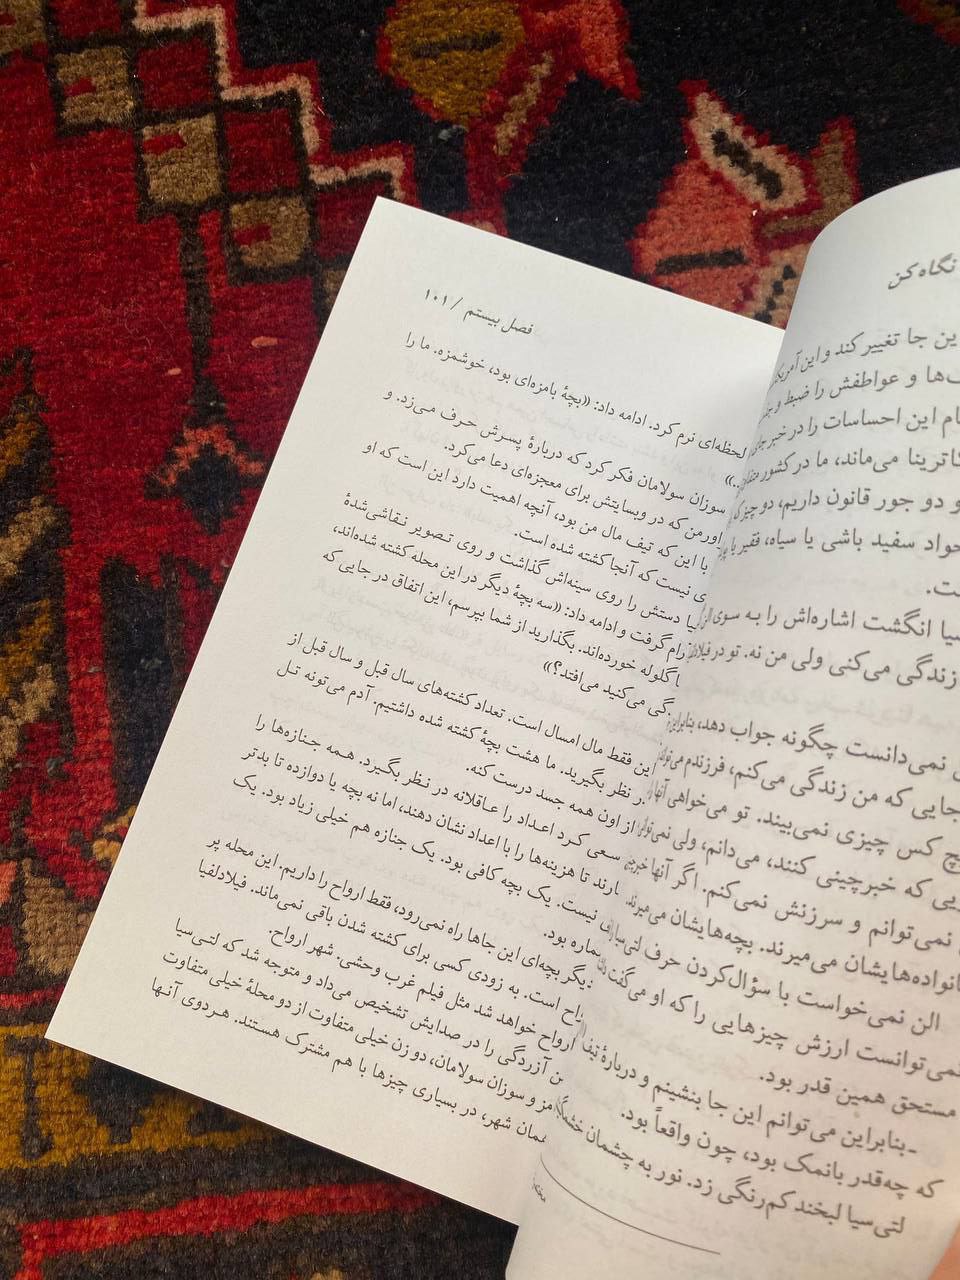 نگاه کن
ین جا تغییر کند و این
ها و عواطفش را ضبط و
ام این احساسات را در خبر
کاترینا می‌ماند، ما در کشور
و دو جور قانون داریم، دو چیز که
خواد سفید باشی یا سیاه، فقیر یا
ت.
سیا انگشت اشاره‌اش را به سوی
زندگی می‌کنی ولی من نه. تو در
نمی‌دانست چگونه جواب دهد،
جایی که من زندگی می‌کنم، فرزندم
چ کس چیزی نمی‌بیند. تو می‌خواهی آنها
یی که خبرچینی کنند، می‌دانم، ولی
نمی‌توانم و سرزنش نمی‌کنم. اگر آنها
انواده‌هایشان می‌میرند. بچه‌هایشان می‌میرند.
الن نمی‌خواست با سؤال‌کردن حرف لتی‌سیا را
نمی‌توانست ارزش چیزهایی را که او می‌گفت
مستحق همین قدر بود.
ـ بنابراین می‌توانم این جا بنشینم و دربارهٔ تیف
که چه‌قدر بانمک بود، چون واقعاً بود.
لتی‌سیا لبخند کم‌رنگی زد. نور به چشمان
فصل بیستم / ۱۰۱
لحظه‌ای نرم کرد. ادامه داد: «بچهٔ بامزه‌ای بود، خوشمزه. ما را
.»
سوزان سولامان فکر کرد که دربارهٔ پسرش حرف می‌زد. و
اورمن که در وبسایتش برای معجزه‌ای دعا می‌کرد.
با این که تیف مال من بود، آنچه اهمیت دارد این است که او
ی نیست که آنجا کشته شده است.
یا دستش را روی سینه‌اش گذاشت و روی تصویر نقاشی‌شدهٔ
رام گرفت و ادامه داد: «سه بچهٔ دیگر در این محله کشته شده‌اند،
ا گلوله خورده‌اند. بگذارید از شما بپرسم، این اتفاق در جایی که
گی می‌کنید می‌افتد؟»
این فقط مال امسال است. تعداد کشته‌های سال قبل و سال قبل از
ر نظر بگیرید. ما هشت بچهٔ کشته شده داشتیم. آدم می‌تونه تل
از اون همه جسد درست کنه.
سعی کرد اعداد را عاقلانه در نظر بگیرد. همه جنازه‌ها را
ارند تا هزینه‌ها را با اعداد نشان دهند، اما نه بچه یا دوازده تا بدتر
نیست. یک بچه کافی بود. یک جنازه هم خیلی زیاد بود. یک
ماره بود.
دیگر بچه‌ای این جاها راه نمی‌رود، فقط ارواح را داریم. این محله پر
اح است. به زودی کسی برای کشته شدن باقی نمی‌ماند. فیلادلفیا
ارواح خواهد شد مثل فیلم غرب وحشی. شهر ارواح.
ن آزردگی را در صدایش تشخیص می‌داد و متوجه شد که لتی‌سیا
مز و سوزان سولامان، دو زن خیلی متفاوت از دو محلهٔ خیلی متفاوت
مان شهر، در بسیاری چیزها با هم مشترک هستند. هردوی آنها